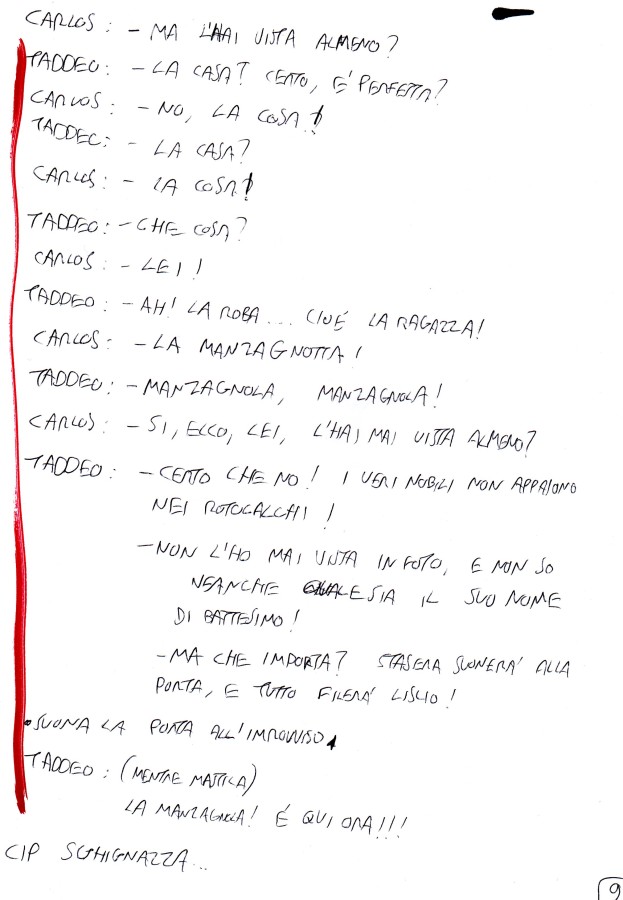 CARLOS: - MA L'HAI VISTA ALMENO?
TADDEO: - LA CASA? CERTO, E' PERFETTA?
CARLOS: - NO, LA COSA!
TADDEO: - LA CASA?
CARLOS: - LA COSA!
TADDEO: - CHE COSA?
CARLOS: - LEI!
TADDEO: - AH! LA ROBA... CIOÉ LA RAGAZZA!
CARLOS: - LA MANZAGNOTTA!
TADDEO: - MANZAGNOLA, MANZAGNOLA!
CARLOS: - SI, ECCO, LEI, L'HAI MAI VISTA ALMENO?
TADDEO: - CERTO CHE NO! I VERI NOBILI NON APPAIONO
NEI ROTOCALCHI!
- NON L'HO MAI VISTA IN FOTO, E NON SO
NEANCHE QUALE SIA IL SUO NOME
DI BATTESIMO!
- MA CHE IMPORTA? STASERA SUONERA' ALLA
PORTA, E TUTTO FILERA' LISCIO!
• SUONA LA PORTA ALL'IMPROVVISO.
TADDEO: (MENTRE MASTICA)
LA MANZAGNOLA! É QUI ORA!!!
CIP SGHIGNAZZA...
9